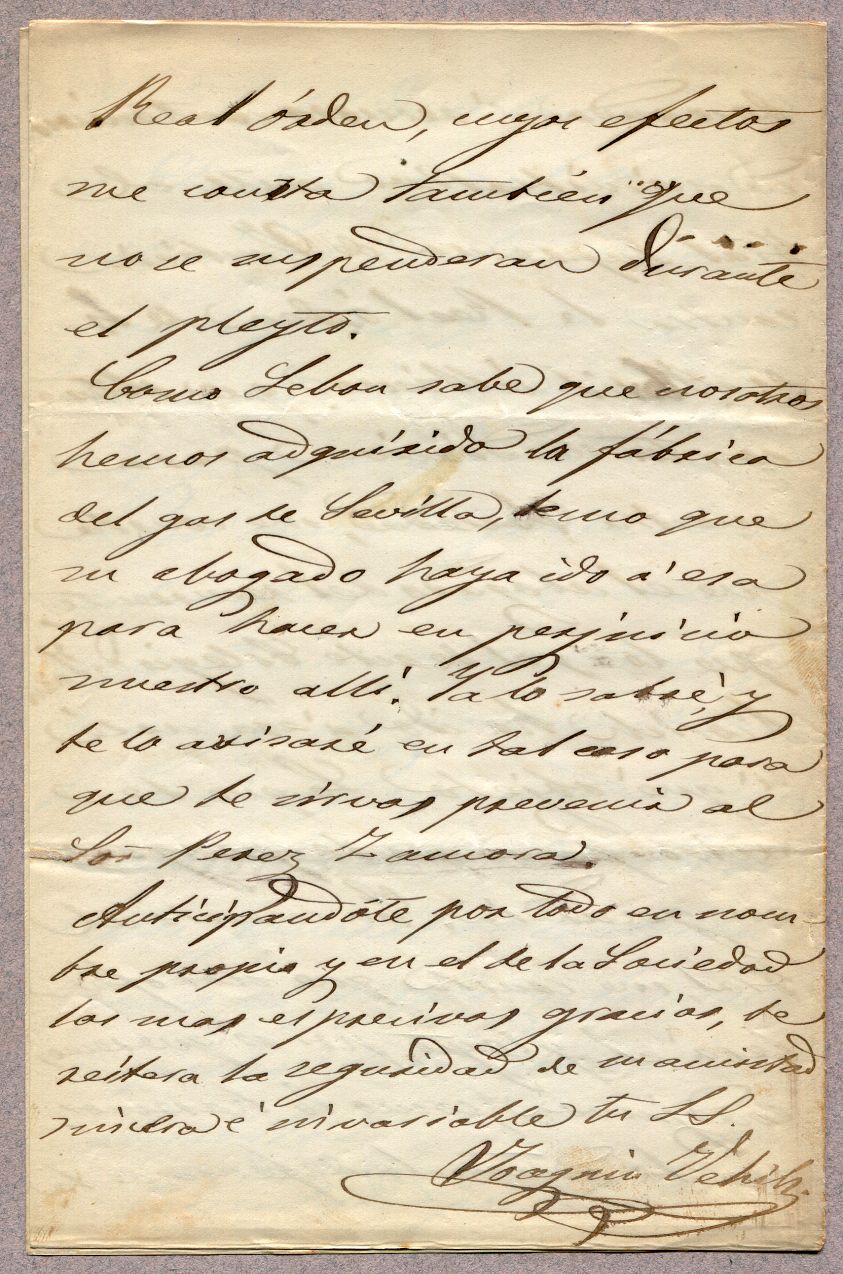 Real órden, cuyos efectos
me consta también que
no se suspenderan durante
el pleyto.
Como Lebon sabe que nosotros
hemos adquirido la fábrica
del gas de Sevilla, temo que
su abogado haya ido á esa
para hacer en perjuicio
nuestro allí. Ya lo sabré, y
te lo avisaré en tal caso para
que te sirvas prevenir al
Sor Perez Zamora.
Anticipandóte por todo en nom-
bre propio y en el de la Sociedad
las mas espresivas gracias, te
reitera la seguridad de su amistad
sincera é invariable tu SS.
Joaquin